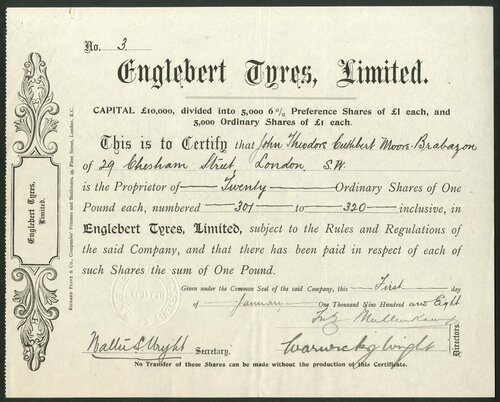 No. 3
Englebert Tyres, Limited.
CAPITAL £10,000, divided into 5,000 6% Preference Shares of £1 each, and
5,000 Ordinary Shares of £1 each.
This is to Certify that John Theodore Cuthbert Moore-Brabazon
of 29 Chesham Street, London. S.W.
is the Proprietor of Twenty Ordinary Shares of One
Pound each, numbered 301 to 320 inclusive, in
Englebert Tyres, Limited, subject to the Rules and Regulations of
the said Company, and that there has been paid in respect of each of
such Shares the sum of One Pound.
Given under the Common Seal of the said Company, this First day
of January One Thousand Nine Hundred and Eight
Secretary.
Warwick J Wright
Directors.
No Transfer of these Shares can be made without the production of this Certificate.
Englebert Tyres,
Limited.